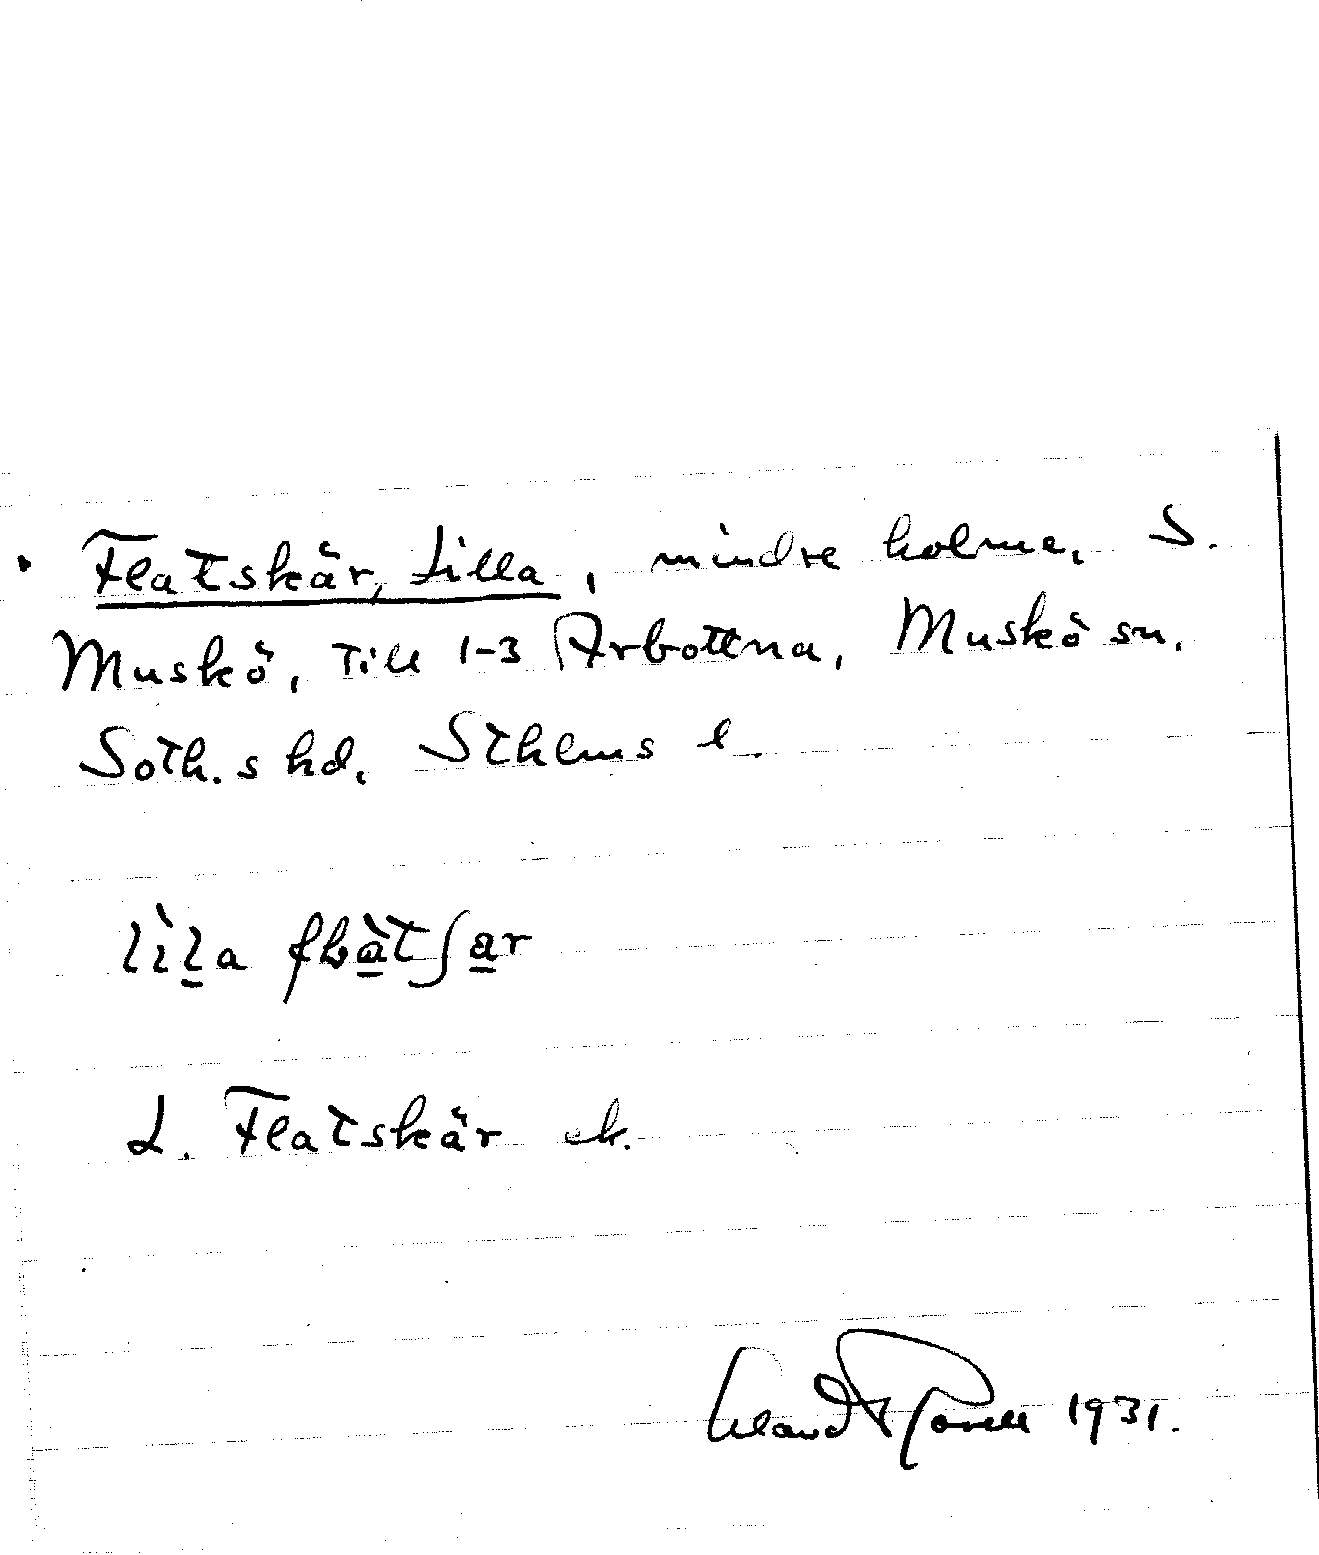 Flatskär, Lilla, mindre holme, S.
Muskö, till 1-3 Arbottna, Muskö sn.
Soth.s hd. Sthlms l.
lìla flàtʃar
L. Flatskär ek.
1931.